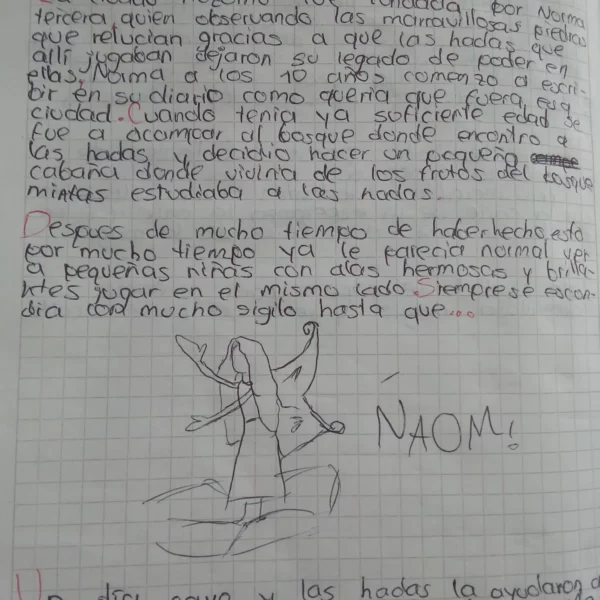 fundada por Norma
tercera quien observando las marravillosas piedras
que relucian gracias a que las hadas que
alli jugaban dejaron su legado de poder en
ellas. Norma a los 10 años comenzo a escri-
bir en su diario como queria que fuera esa
ciudad. Cuando tenia ya suficiente edad se
fue a acampar al bosque donde encontro a
las hadas y decidio hacer un pequeña
cabaña donde viviria de los frutos del bosque
mintas estudiaba a las hadas.
Despues de mucho tiempo de haber hecho esto
por mucho tiempo ya le parecia normal ver
a pequeñas niñas con alas hermosas y brilla-
ntes jugar en el mismo lado. Siempre se escon-
dia con mucho sigilo hasta que...
ÑAOM!
Un dia cayo y las hadas la ayudaron a